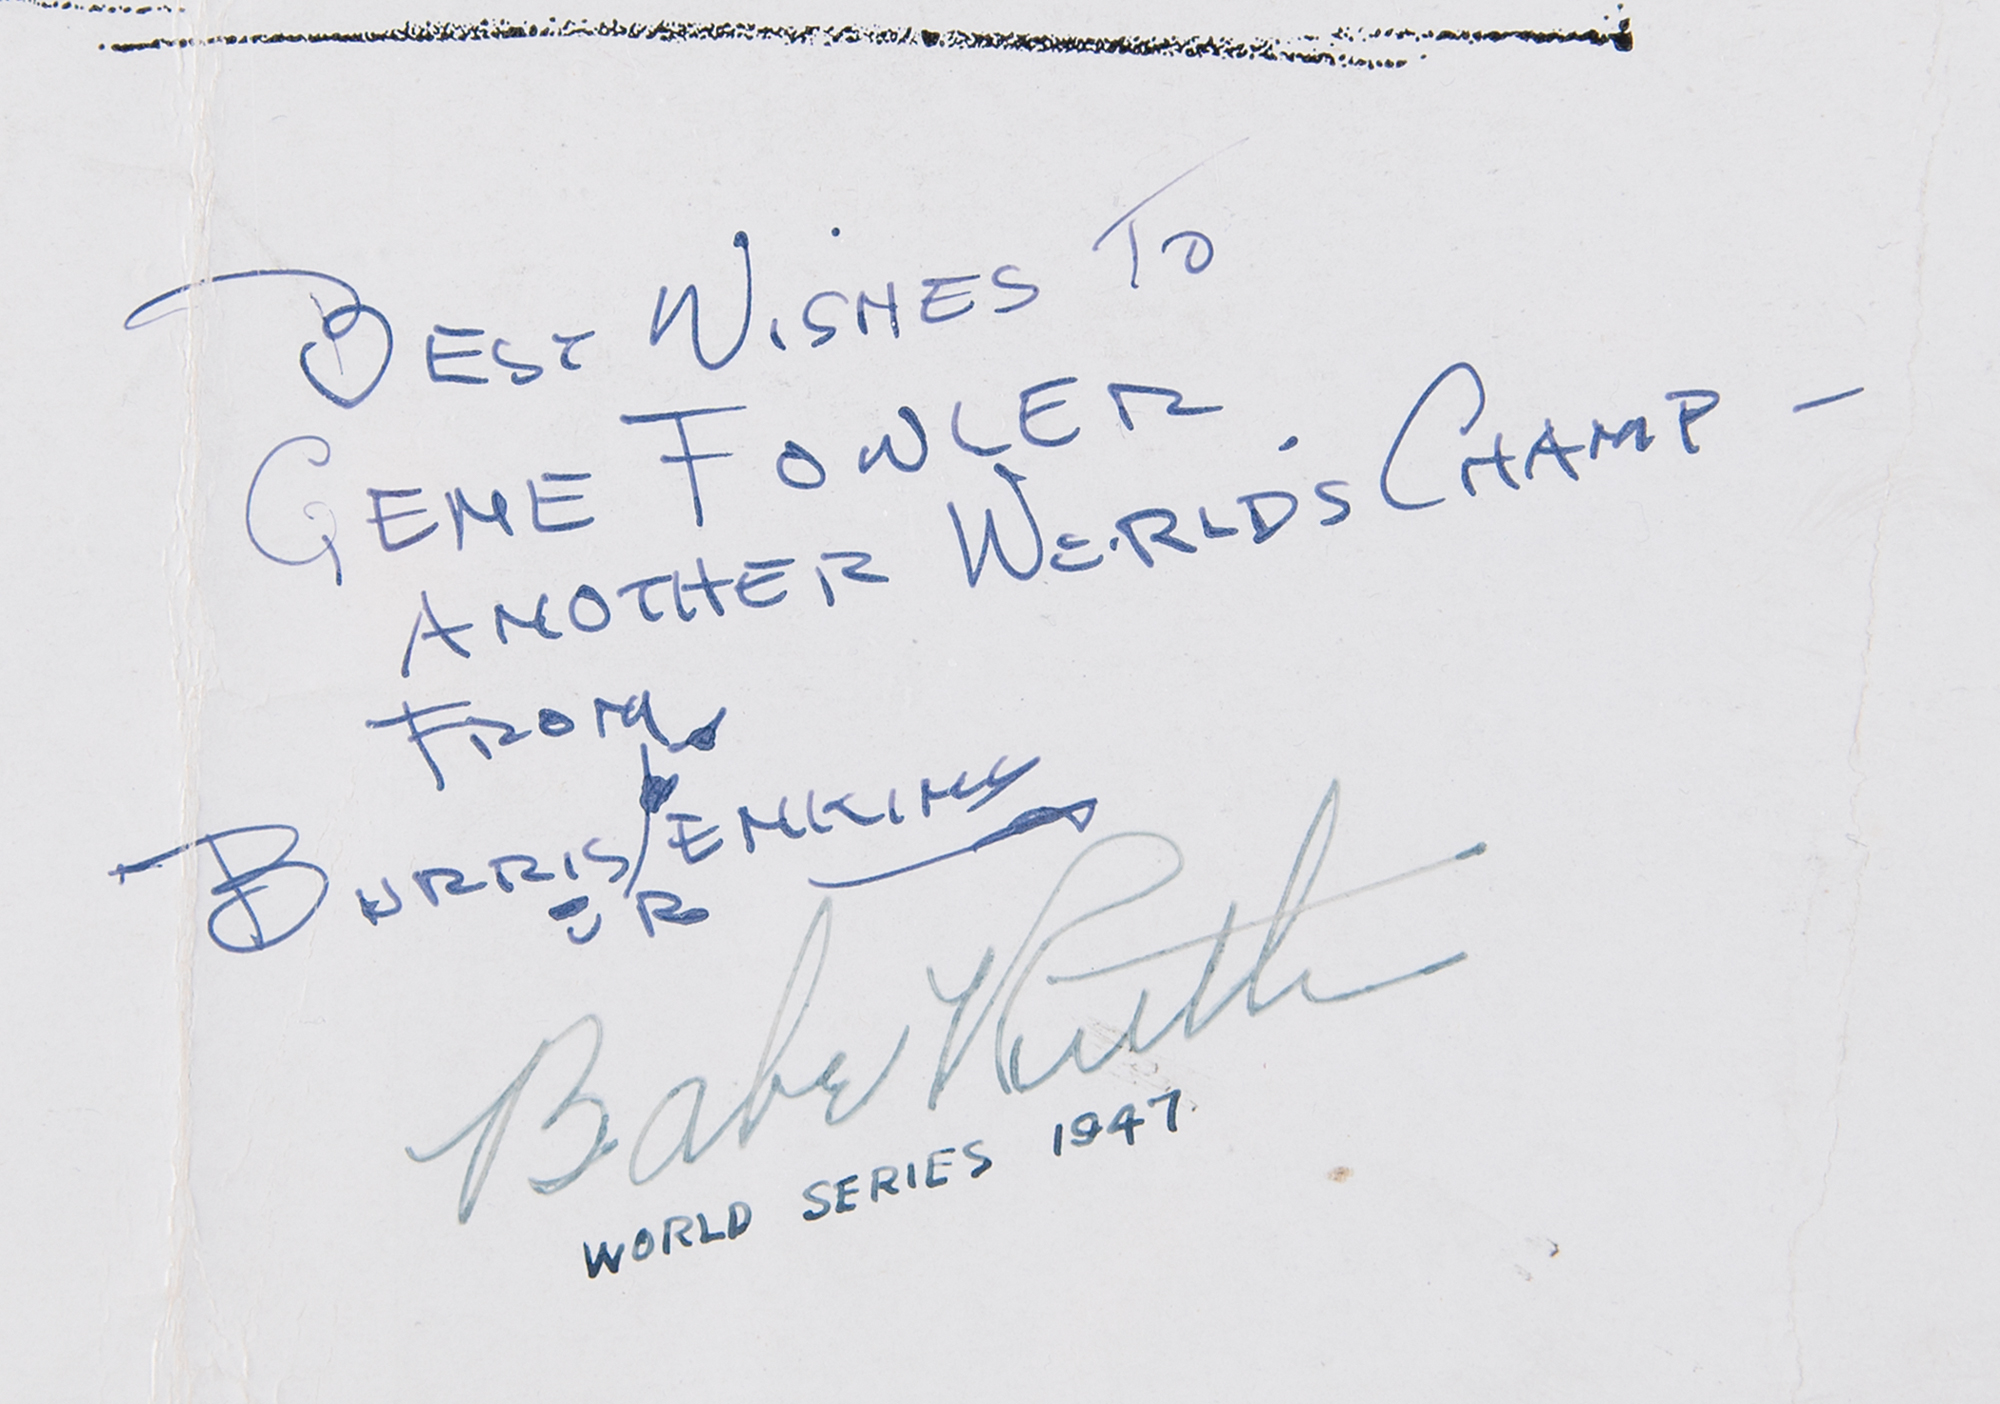 BEST WISHES TO
GENE FOWLER
ANOTHER WORLD'S CHAMP —
FROM
BURRIS JENKINS
JR
Babe Ruth
WORLD SERIES 1947